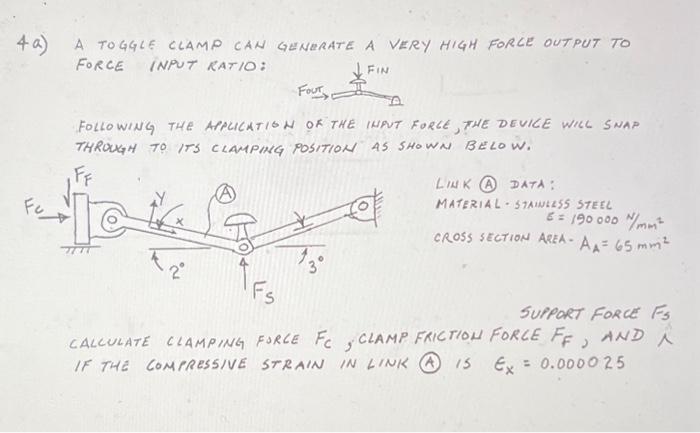 4a) A TOGGLE CLAMP CAN GENERATE A VERY HIGH FORCE OUTPUT TO
FORCE INPUT RATIO:
FIN
FOUT
FOLLOWING THE APPLICATION OF THE INPUT FORCE, THE DEVICE WILL SNAP
THROUGH TO ITS CLAMPING POSITION AS SHOWN BELOW.
FF
Fc
Y
X
A
2°
3°
FS
LINK A DATA:
MATERIAL - STAINLESS STEEL
E = 190 000 N/mm²
CROSS SECTION AREA - AA = 65 mm²
SUPPORT FORCE FS
CALCULATE CLAMPING FORCE FC, CLAMP FRICTION FORCE FF, AND
IF THE COMPRESSIVE STRAIN IN LINK A IS Ex = 0.000025